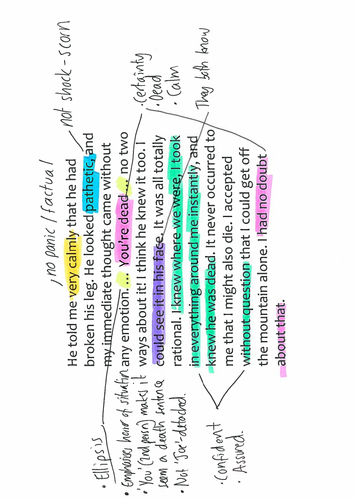 no panic / factual
not shock - scorn
· Certainty
· Dead
· Calm
They both know
He told me very calmly that he had
broken his leg. He looked pathetic, and
my immediate thought came without
any emotion. .... You're dead ... no two
ways about it! I think he knew it too. I
could see it in his face. It was all totally
rational. I knew where we were, I took
in everything around me instantly, and
knew he was dead. It never occurred to
me that I might also die. I accepted
without question that I could get off
the mountain alone. I had no doubt
about that.
· Ellipsis
· Emphasises horror of situation
· 'You' (2nd person) makes it
seem a death sentence
· Not 'Joe' - detached.
· Confident
· Assured.